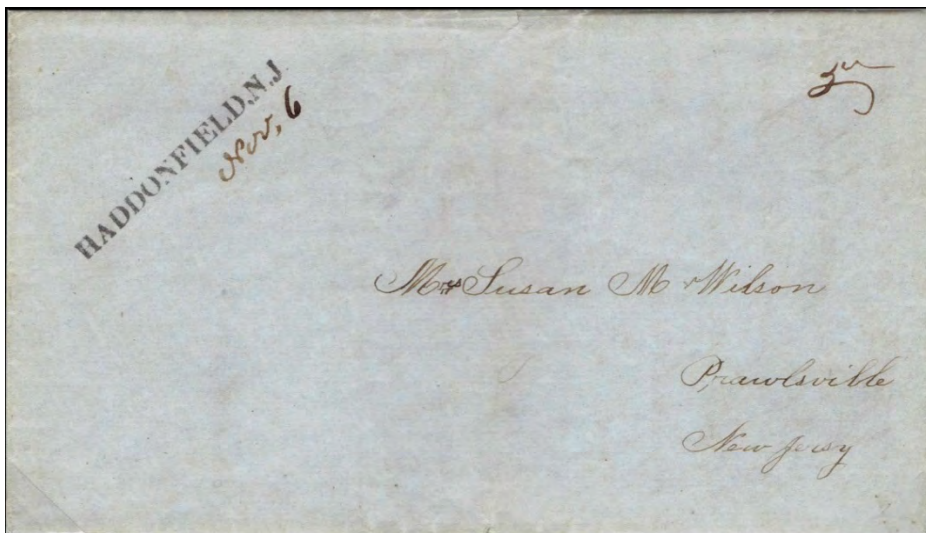 HADDONFIELD, N.J
Nov, 6
5
Mrs Susan M Wilson
Prawlsville
New Jersy